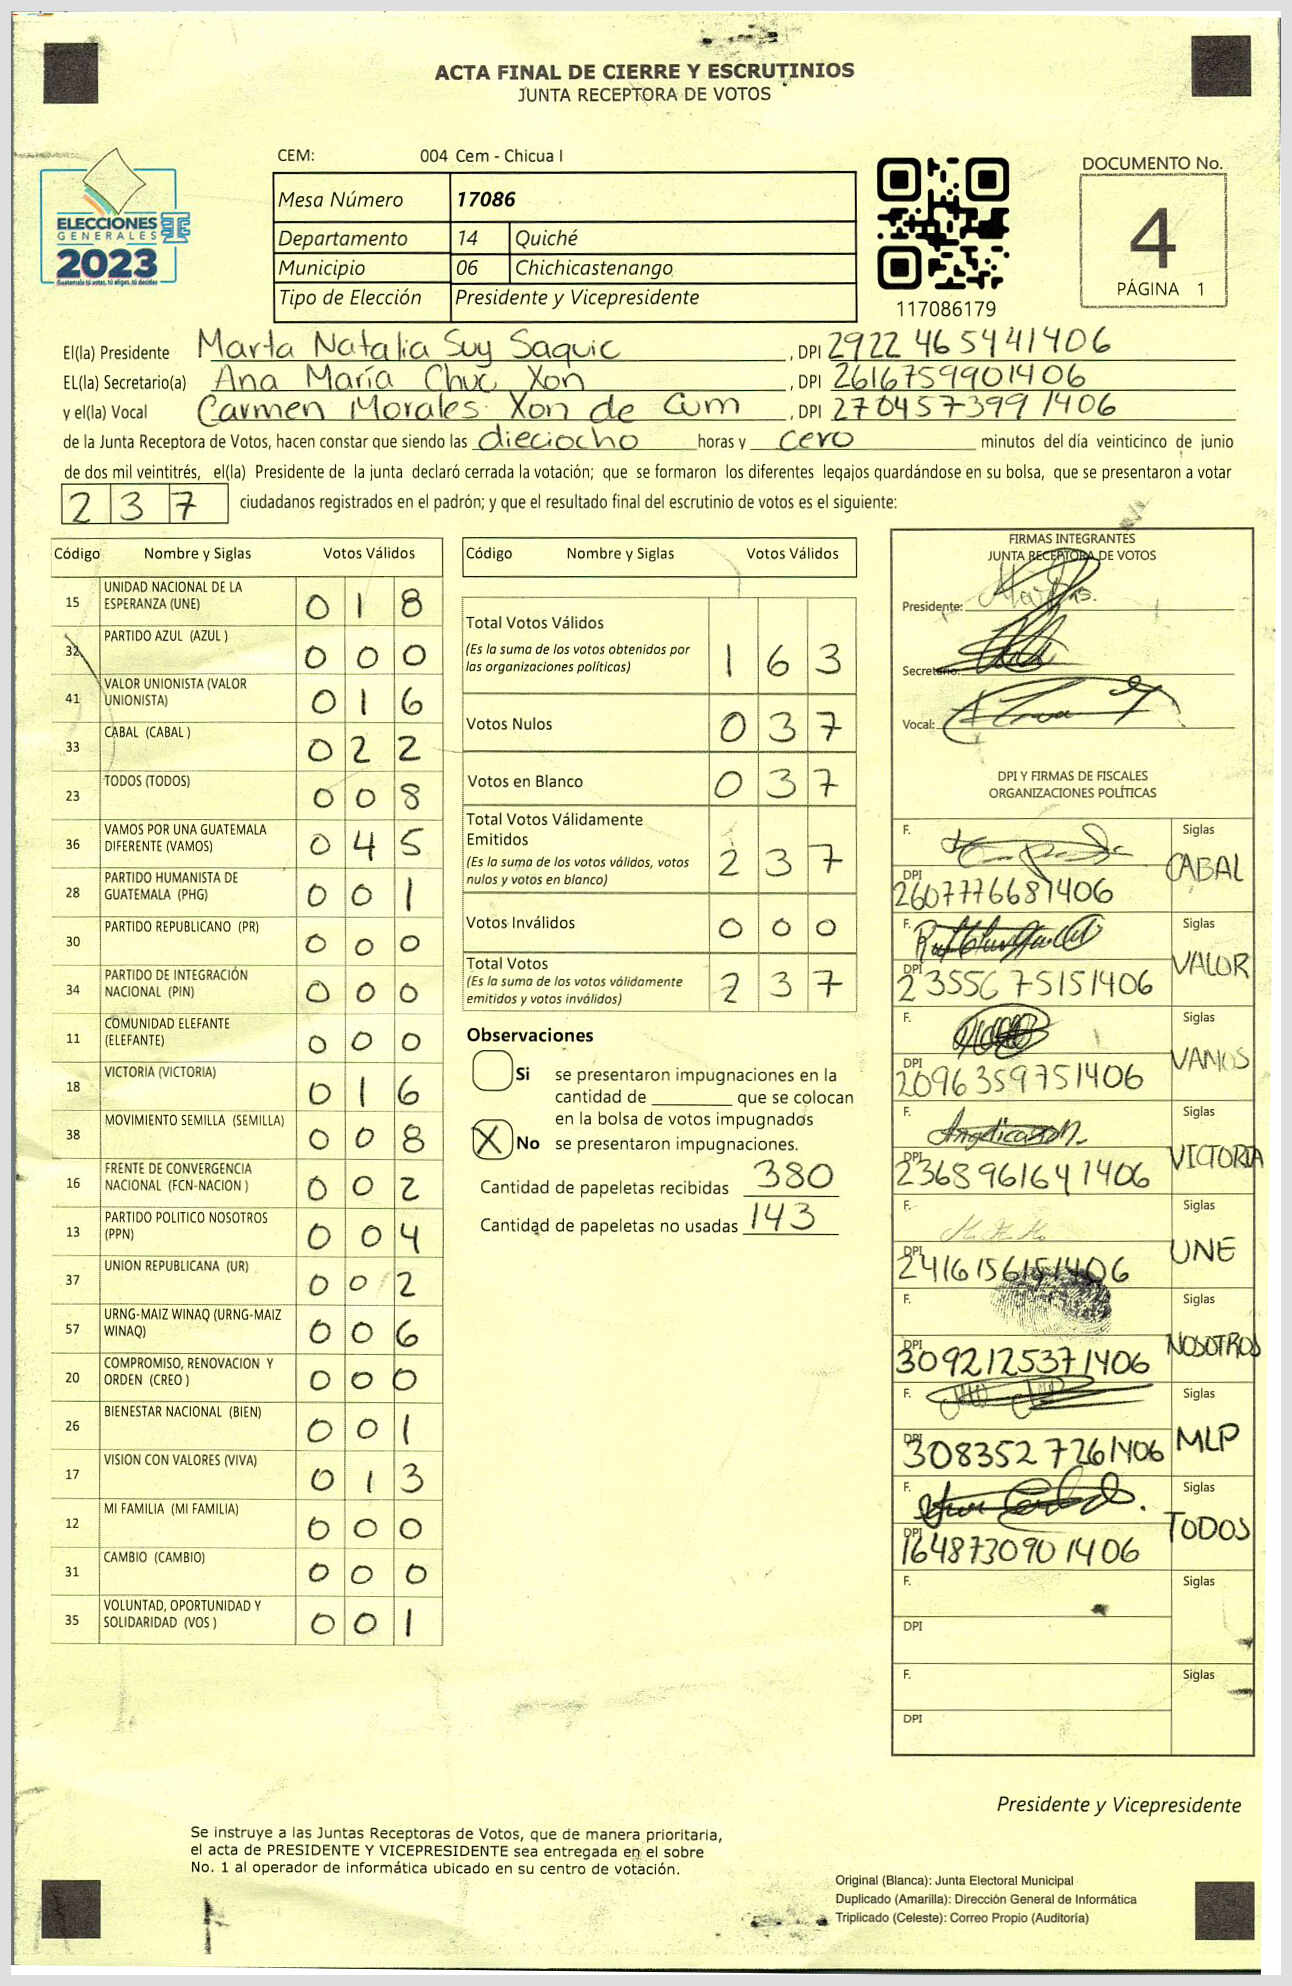 ACTA FINAL DE CIERRE Y ESCRUTINIOS
JUNTA RECEPTORA DE VOTOS
CEM: 004 Cem - Chicua I
Mesa Número 17086
Departamento 14 Quiché
Municipio 06 Chichicastenango
Tipo de Elección Presidente y Vicepresidente
ELECCIONES
GENERALES
2023
Guatemala tú votas, tú eliges, tú decides
117086179
DOCUMENTO No.
4
PÁGINA 1
El(la) Presidente Marta Natalia Suy Saquic, DPI 2922 46544 1406
EL(la) Secretario(a) Ana María Chuc Xon, DPI 2616759901406
y el(la) Vocal Carmen Morales Xon de Cum, DPI 270457399 1406
de la Junta Receptora de Votos, hacen constar que siendo las dieciocho horas y cero minutos del día veinticinco de junio
de dos mil veintitrés, el(la) Presidente de la junta declaró cerrada la votación; que se formaron los diferentes legajos guardándose en su bolsa, que se presentaron a votar
237 ciudadanos registrados en el padrón; y que el resultado final del escrutinio de votos es el siguiente:
Código Nombre y Siglas Votos Válidos
15 UNIDAD NACIONAL DE LA ESPERANZA (UNE) 0 1 8
32 PARTIDO AZUL (AZUL ) 0 0 0
41 VALOR UNIONISTA (VALOR UNIONISTA) 0 1 6
33 CABAL (CABAL ) 0 2 2
23 TODOS (TODOS) 0 0 8
36 VAMOS POR UNA GUATEMALA DIFERENTE (VAMOS) 0 4 5
28 PARTIDO HUMANISTA DE GUATEMALA (PHG) 0 0 1
30 PARTIDO REPUBLICANO (PR) 0 0 0
34 PARTIDO DE INTEGRACIÓN NACIONAL (PIN) 0 0 0
11 COMUNIDAD ELEFANTE (ELEFANTE) 0 0 0
18 VICTORIA (VICTORIA) 0 1 6
38 MOVIMIENTO SEMILLA (SEMILLA) 0 0 8
16 FRENTE DE CONVERGENCIA NACIONAL (FCN-NACION ) 0 0 2
13 PARTIDO POLITICO NOSOTROS (PPN) 0 0 4
37 UNION REPUBLICANA (UR) 0 0 2
57 URNG-MAIZ WINAQ (URNG-MAIZ WINAQ) 0 0 6
20 COMPROMISO, RENOVACION Y ORDEN (CREO ) 0 0 0
26 BIENESTAR NACIONAL (BIEN) 0 0 1
17 VISION CON VALORES (VIVA) 0 1 3
12 MI FAMILIA (MI FAMILIA) 0 0 0
31 CAMBIO (CAMBIO) 0 0 0
35 VOLUNTAD, OPORTUNIDAD Y SOLIDARIDAD (VOS ) 0 0 1
Código Nombre y Siglas Votos Válidos
Total Votos Válidos
(Es la suma de los votos obtenidos por las organizaciones políticas) 1 6 3
Votos Nulos 0 3 7
Votos en Blanco 0 3 7
Total Votos Válidamente Emitidos
(Es la suma de los votos válidos, votos nulos y votos en blanco) 2 3 7
Votos Inválidos 0 0 0
Total Votos
(Es la suma de los votos válidamente emitidos y votos inválidos) 2 3 7
Observaciones
Si se presentaron impugnaciones en la
cantidad de ________ que se colocan
en la bolsa de votos impugnados
X No se presentaron impugnaciones.
Cantidad de papeletas recibidas 380
Cantidad de papeletas no usadas 143
FIRMAS INTEGRANTES
JUNTA RECEPTORA DE VOTOS
Presidente:
Secretario:
Vocal:
DPI Y FIRMAS DE FISCALES
ORGANIZACIONES POLÍTICAS
F. Siglas
DPI 2607776681406 CABAL
F. Siglas
DPI 23556 75151406 VALOR
F. Siglas
DPI 2096359751406 VAMOS
F. Siglas
DPI 2368961641406 VICTORIA
F. Siglas
DPI 2416156151406 UNE
F. Siglas
DPI 3092125371406 NOSOTROS
F. Siglas
DPI 3083527261406 MLP
F. Siglas
DPI 1648730901406 TODOS
F. Siglas
DPI
F. Siglas
DPI
Presidente y Vicepresidente
Se instruye a las Juntas Receptoras de Votos, que de manera prioritaria,
el acta de PRESIDENTE Y VICEPRESIDENTE sea entregada en el sobre
No. 1 al operador de informática ubicado en su centro de votación.
Original (Blanca): Junta Electoral Municipal
Duplicado (Amarilla): Dirección General de Informática
Triplicado (Celeste): Correo Propio (Auditoría)